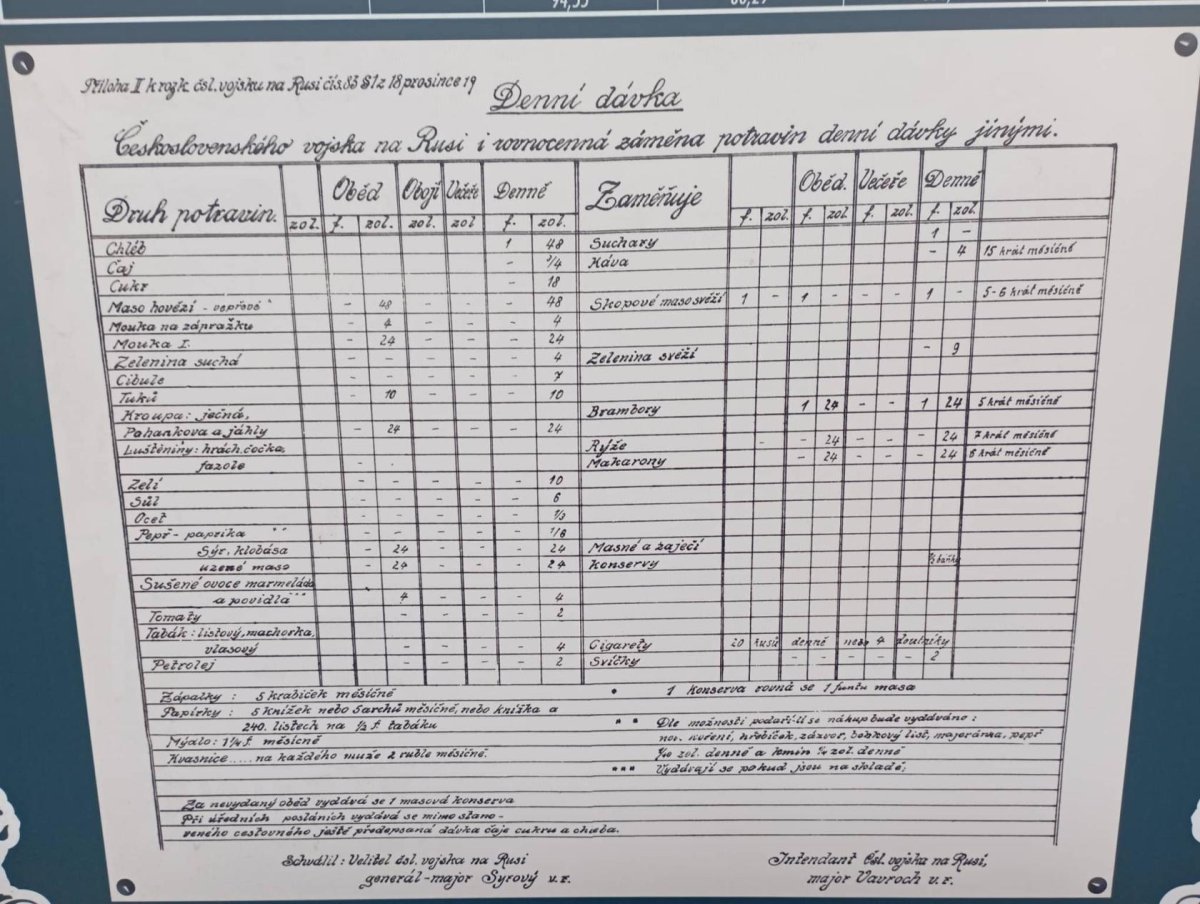 94,55
Příloha II k rozk. čsl. vojsku na Rusi čís. 83 § 1 z 18 prosince 19
Denní dávka
Československého vojska na Rusi i rovnocenná záměna potravin denní dávky jinými.
Druh potravin. Oběd Obojí Večeře Denně Zaměňuje Oběd. Večeře Denně
zol. f. zol. zol. zol f. zol. f. zol. f. zol. f. zol. f. zol.
Chléb 1 48 Suchary 1 -
Čaj - 3/4 Káva - 4 15 krát měsíčně
Cukr - 18
Maso hovězí - vepřové * - 48 - - - 48 Skopové maso svěží 1 - 1 - - - 1 - 5-6 krát měsíčně
Mouka na zápražku - 4 - - - 4
Mouka I. - 24 - - - 24
Zelenina suchá - - - - - 4 Zelenina svěží - 9
Cibule - - - - - 7
Tuků - 10 - - - 10
Kroupa: ječná, Brambory 1 24 - - 1 24 5 krát měsíčně
Pohankova a jáhly - 24 - - - 24
Luštěniny: hrách, čočka, Rýže - - 24 - - - 24 7 krát měsíčně
fazole - - Makarony - 24 - - - 24 6 krát měsíčně
Zelí - - - - - 10
Sůl - - - - - 6
Ocet - - - - - 1/3
Pepř - paprika ** - - - - - 1/6
Sýr, klobása - 24 - - - 24 Masné a zaječí
uzené maso - 24 - - - 24 konservy 1/2 baňky
Sušené ovoce marmeláda
a povidla *** 4 - - 4
Tomaty - - - 2
Tabák: listový, machorka,
vlasový - - - 4 Cigarety 20 kusů denně nebo 4 doutníky
Petrolej - - - 2 Svíčky - - - - 2
Zápalky : 5 krabiček měsíčně * 1 konserva rovná se 1 funtu masa
Papírky : 5 knížek nebo 5 archů měsíčně, nebo knížka a
240. listech na 1/2 f. tabáku ** Dle možnosti podaří-li se nákup bude vydáváno :
Mýdlo: 1 1/4 f. měsíčně nov. koření, hřebíček, zázvor, bobkový list, majoránka, pepř
Kvasnice..... na každého muže 2 ruble měsíčně. zol. denně a kmín 1/4 zol. denně
*** Vydávají se pokud jsou na skladě;
Za nevydaný oběd vydává se 1 masová konserva
Při úředních posláních vydává se mimo stano-
veného cestovného, ještě předepsaná dávka čaje cukru a chleba.
Schválil : Velitel čsl. vojska na Rusi
generál-major Syrový v. r.
Intendant Čsl. vojska na Rusi,
major Vavroch v. r.